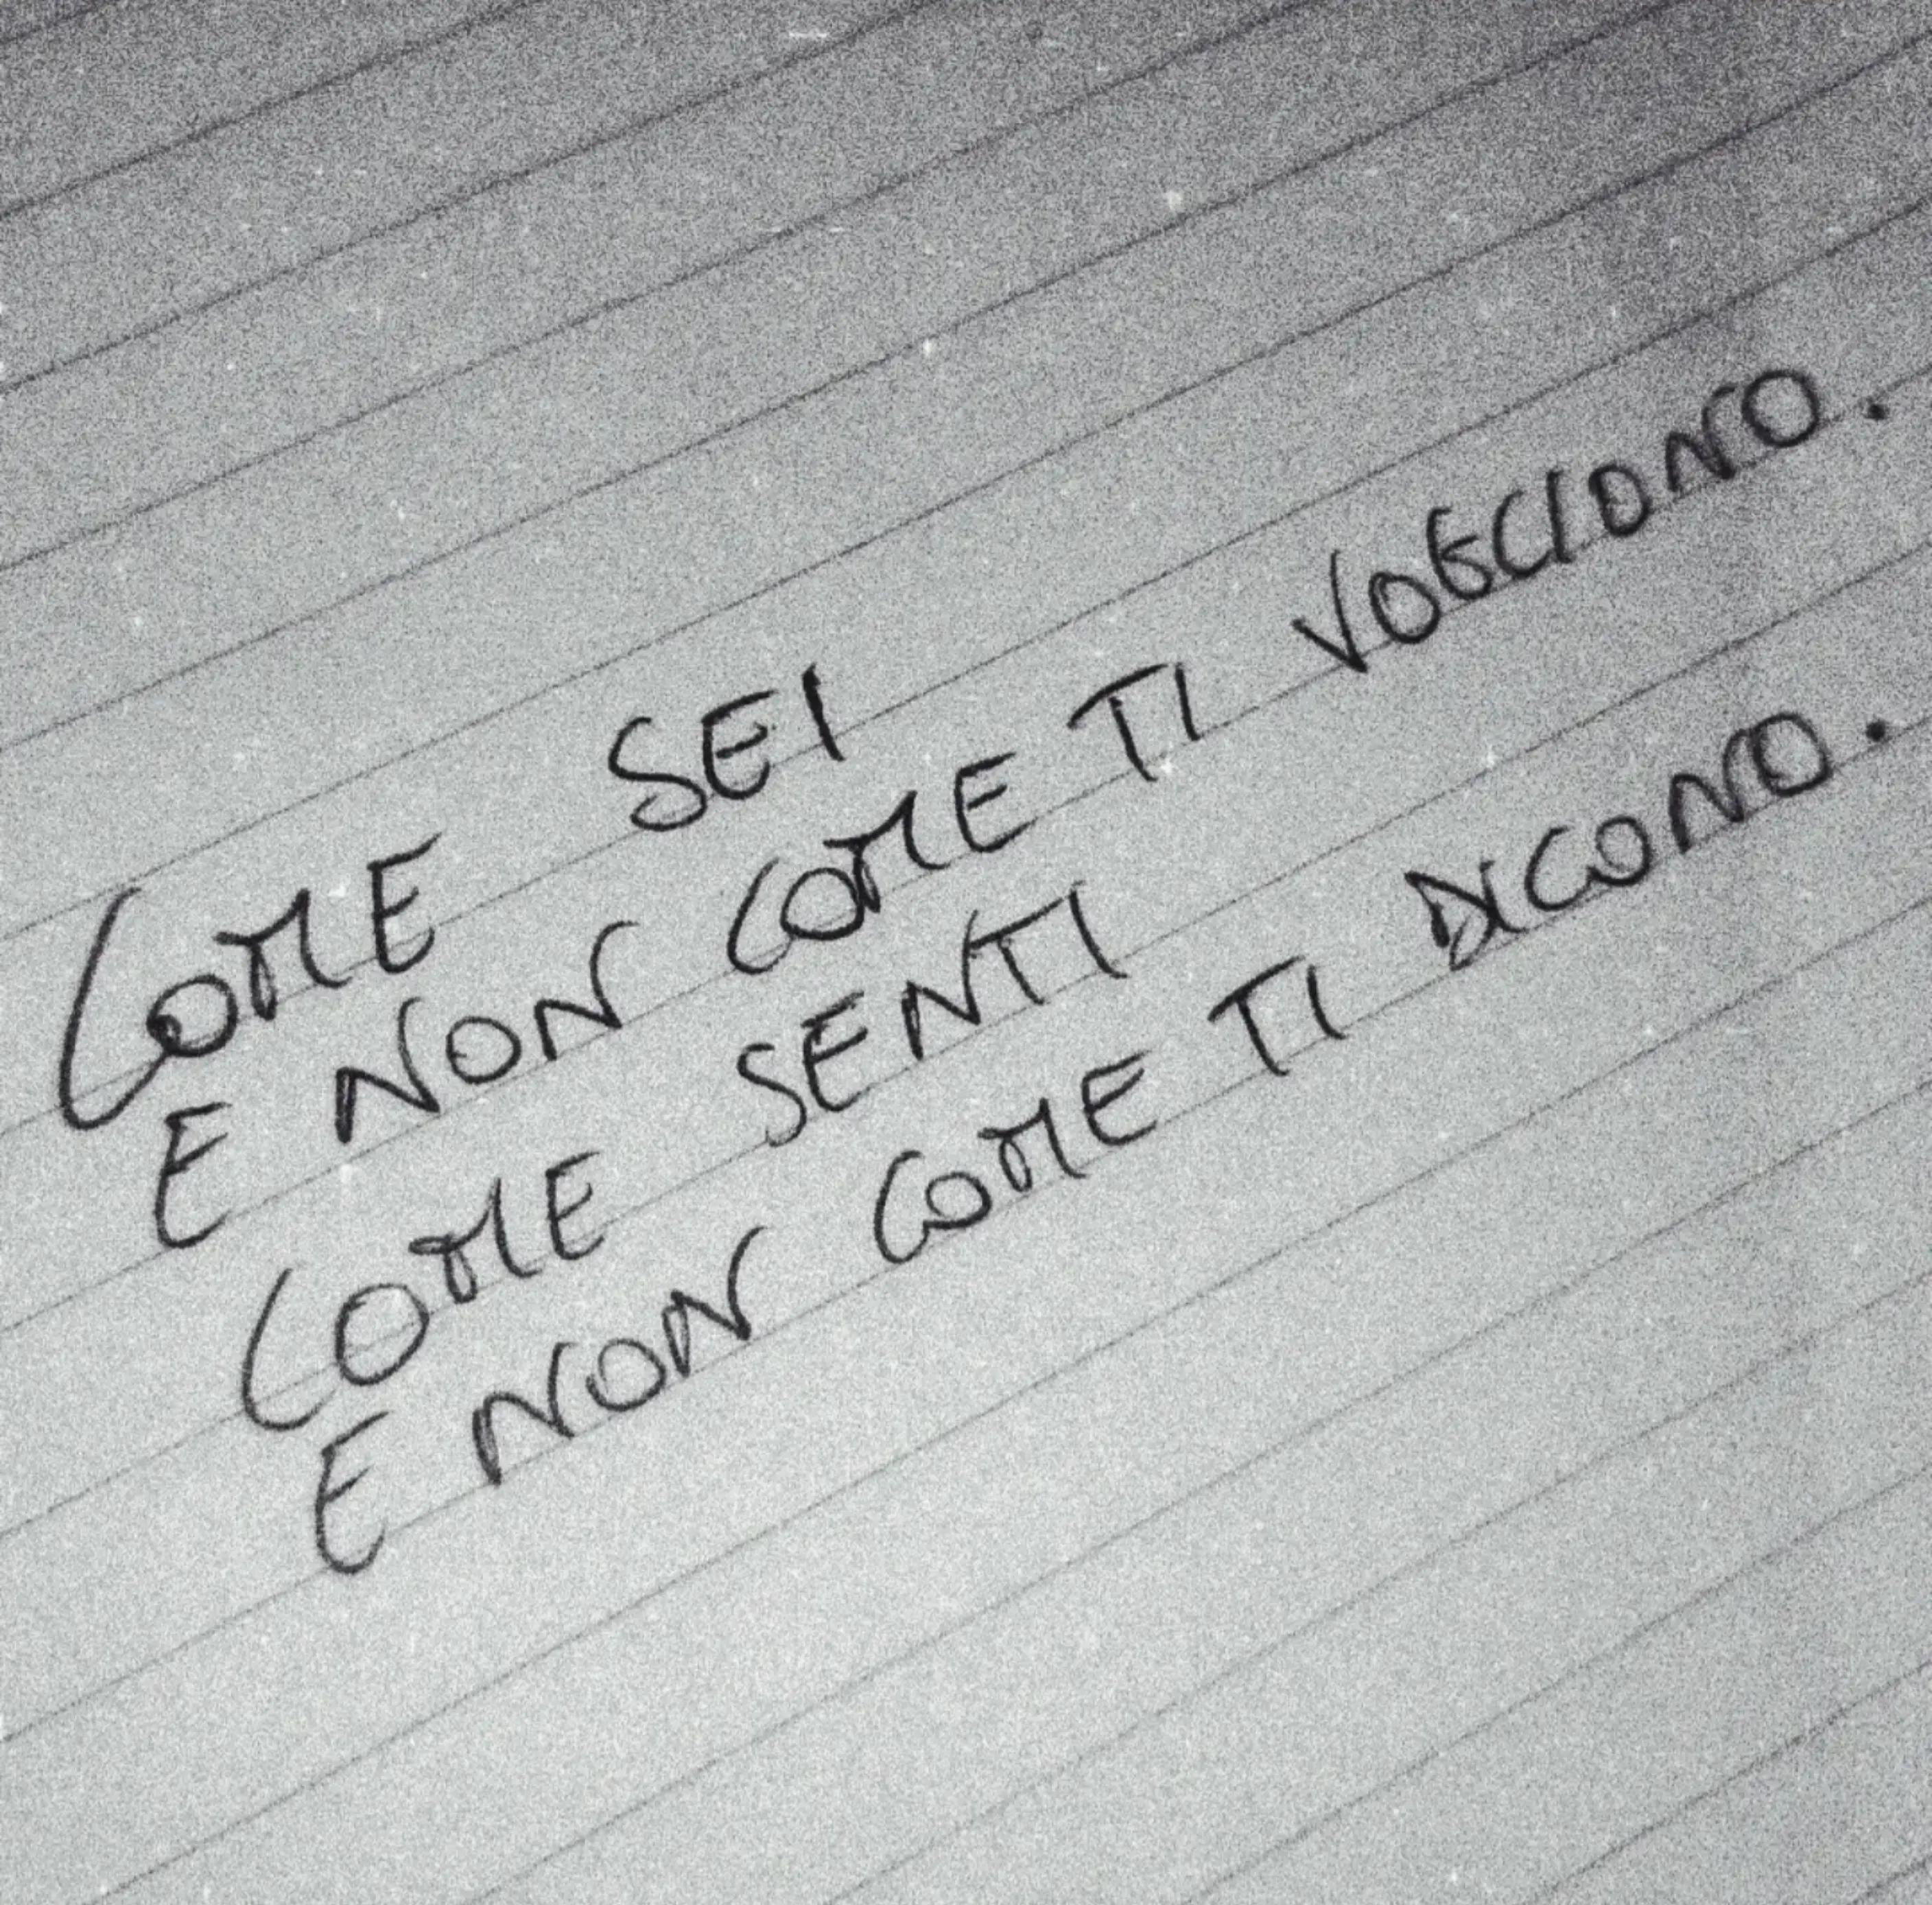 COME SEI
E NON COME TI VOGLIONO.
COME SENTI
E NON COME TI DICONO.